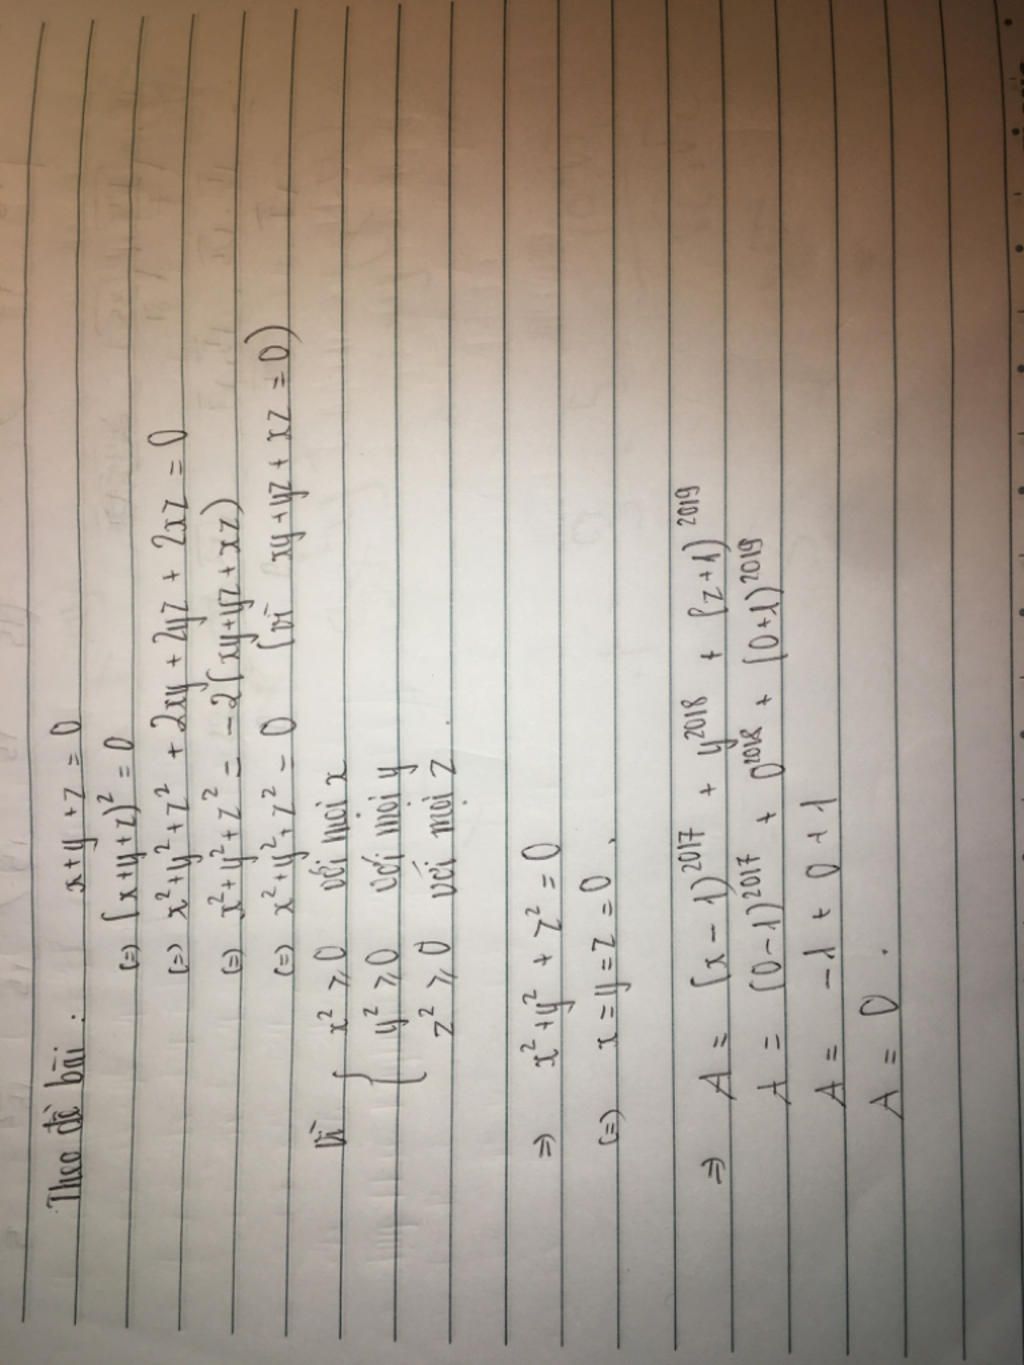 Theo đề bài : x+y+z = 0
(=) (x+y+z)² = 0
(=) x²+y²+z² + 2xy + 2yz + 2xz = 0
(=) x²+y²+z² = -2(xy+yz+xz)
(=) x²+y²+z² = 0 (vì xy+yz+xz = 0)
Vì { x² ⩾ 0 với mọi x
y² ⩾ 0 với mọi y
z² ⩾ 0 với mọi z .
=) x²+y² + z² = 0
(=) x = y = z = 0 .
=) A = (x - 1)²⁰¹⁷ + y²⁰¹⁸ + (z+1)²⁰¹⁹
A = (0-1)²⁰¹⁷ + 0²⁰¹⁸ + (0+1)²⁰¹⁹
A = -1 + 0 + 1
A = 0 .